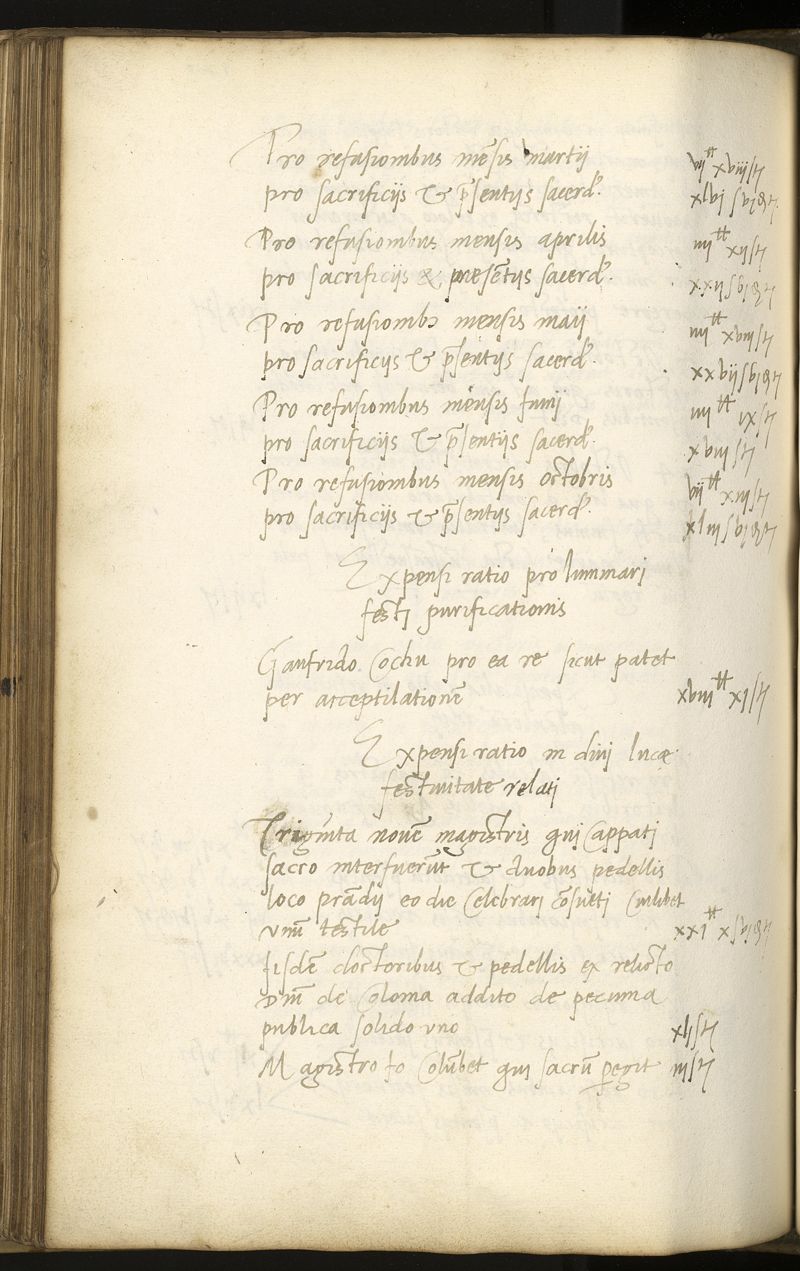 Pro refusionibus mēsis martij vij<sup>tt</sup> xviijs
pro sacrificijs & p̄sentijs sacerd. xlvj s vj d
Pro refusionibus mensis aprilis iiij<sup>tt</sup> xijs
pro sacrificijs & presētijs sacerd. xxij s vj d
Pro refusionib9 mensis maij iiij<sup>tt</sup> xviijs
pro sacrificijs & p̄sentijs sacerd. xxvij s vj d
Pro refusionibus mensis Iunij iiij<sup>tt</sup> ixs
pro sacrificijs & p̄sentijs sacerd. xviij s
Pro refusionibus mensis octobris vij<sup>tt</sup> xiijs
pro sacrificijs & p̄sentijs sacerd. xliij s vj d
Expensi ratio pro luminari
festi purificationis
Gaufrido Cochu pro ea re sicut patet
per acceptilationē xviij<sup>tt</sup> xjs
Expensi ratio in divi lucæ
festivitate relati
Triginta novē magistris qui Cappati
sacro interfuerūt & duobus pedellis
loco prādij eo die Celebrari cōsueti Cuilibet
vnū testile xxj<sup>tt</sup> x s vj d
Iisdē doctoribus & pedellis ex relicto
dn̄i de Coloma addito de pecunia
publica solido vno xljs
Magistro Io Colūbet qui sacrū peregit iijs